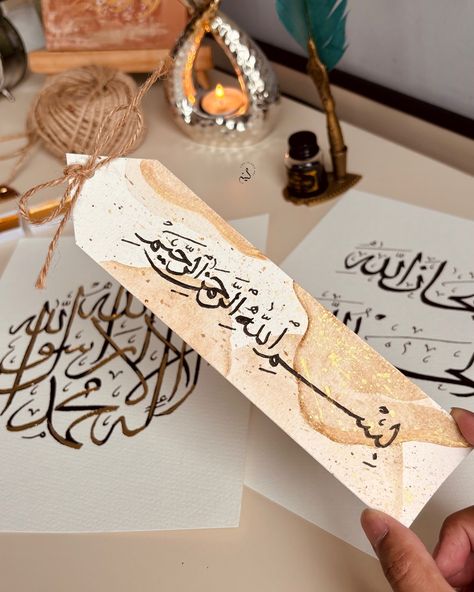 بِسْمِ اللهِ الرَّحْمٰنِ الرَّحِيْمِ
لا اله الا الله
محمد رسول الله
سبحان الله